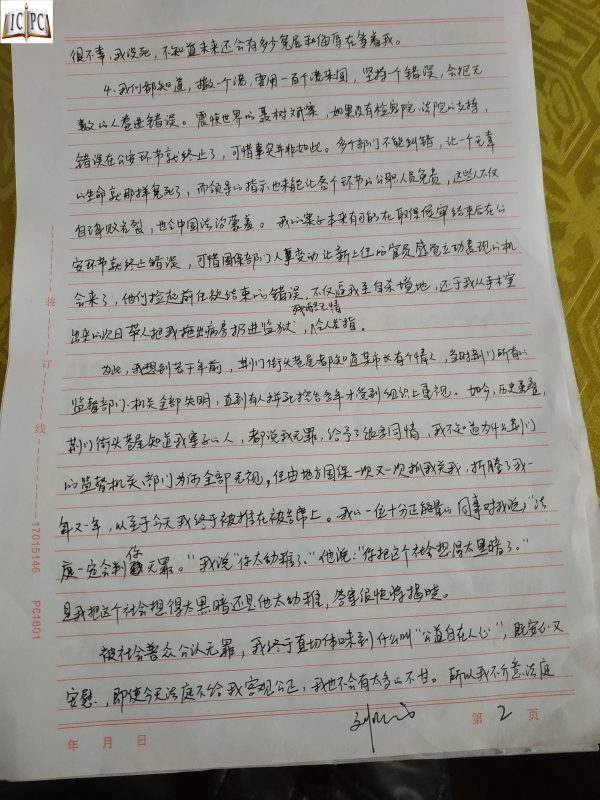 ICPC
很不幸，我没死，不知道未来还会有多少冤屈和侮辱在等着我。
4.我们都知道，撒一个谎，要用一百个谎来圆，坚持一个错误，会把无
数的人卷进错误。震惊世界的聂树斌案，如果没有检察院、法院的支持，
错误在公安环节就终止了，可惜事实并非如此。多个部门不能纠错，让一个无辜
的生命就那样冤死了，而领导的指示也未能让各个环节的公职人员免责，这些人不仅
自身败名裂，也令中国法治蒙羞。我的案子本来有可能在取保候审结束后在公
安环节就终止错误，可惜国保部门人事变动让新上任的官员感觉立功表现的机
会来了，他们捡起前任欲结束的错误，不仅逼我至自杀境地，还于我从手术室
出来的次日带人把我拖出病房扔进监狱，残酷无情，令人发指。
为此，我想到若干年前，荆门街头巷尾都知道某市长有个情人，当时荆门所有的
监督部门、机关全部失明，直到有人拼死控告多年才受到组织上重视。如今，历史重叠，
荆门街头巷尾知道我案子的人，都说我无罪，给予了组安同情，我不知道为什么荆门
的监督机关、部门为何全部无视，任由地方国保一次又一次抓我关我，折腾了我一
年又一年，以至于今天我终于被推在被告席上。我的一位十分正能量的同事对我说，"法
庭一定会判你无罪。"我说"你太幼稚了。"他说："你把这个社会想得太黑暗了。"
是我把这个社会想得太黑暗还是他太幼稚，答案很快将揭晓。
被社会普众公认无罪，我终于真切体味到什么叫"公道自在人心"，既寒心又
安慰，即使今天法庭不给我客观公正，我也不会有太多的不甘。所以我不介意法庭
第 2 页
年 月 日
装 订 线 17015146 PC1801